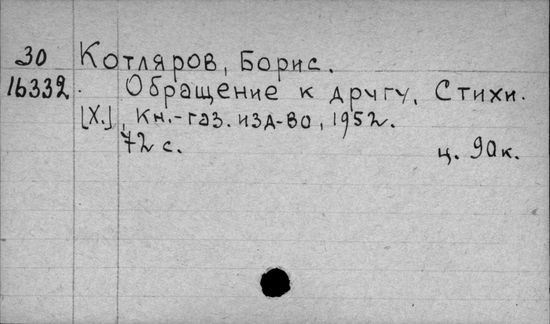 30 Котляров, Борис.
16332. Обращение к другу. Стихи.
[Х.], Кн.-газ. изд-во, 1952.
72 с. ц. 90к.